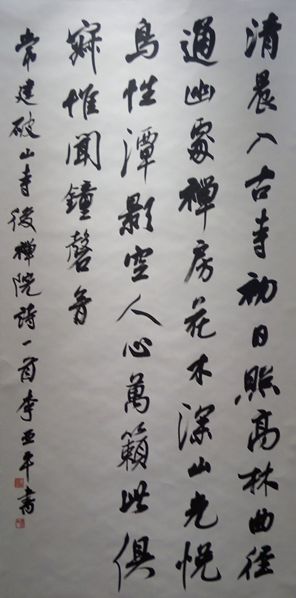 清晨入古寺初日照高林曲徑
通幽處禪房花木深山光悅
鳥性潭影空人心萬籟此俱
寂惟聞鐘磬音
常建破山寺後禪院詩一首李亞平書